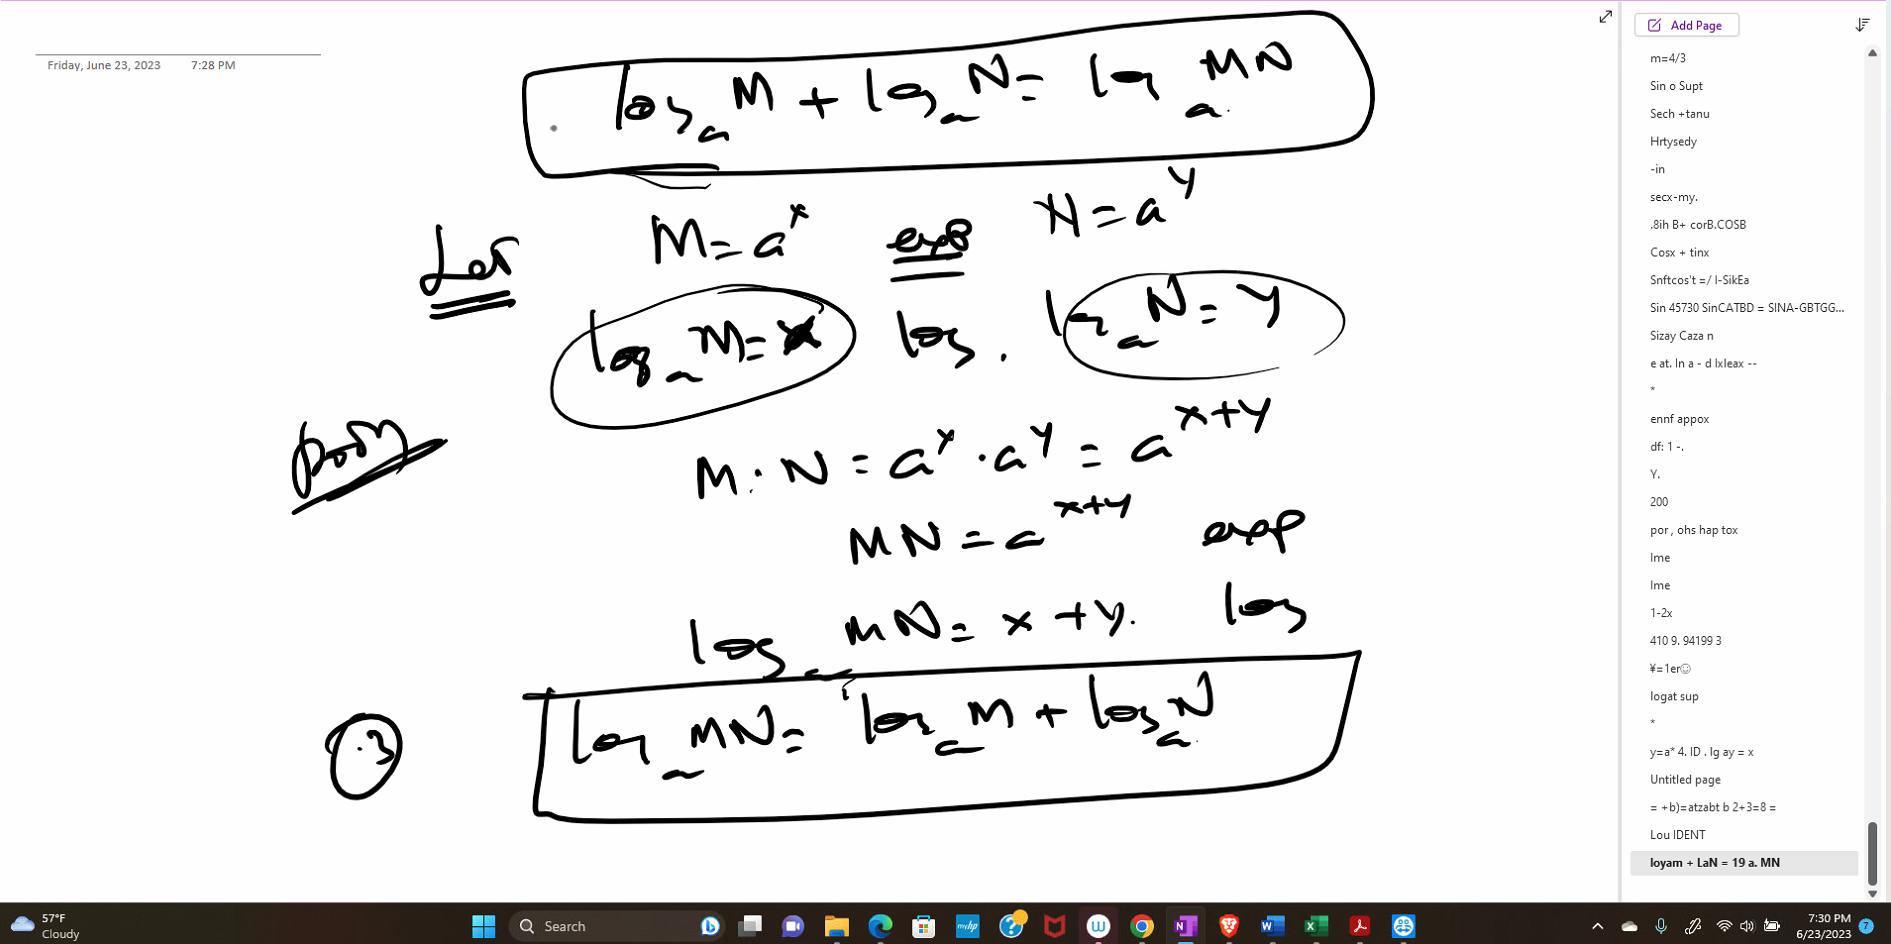 Friday, June 23, 2023 7:28 PM
logₐ M + logₐ N = logₐ MN
Let M = aˣ exp N = aʸ
logₐ M = x log. logₐ N = y
M · N = aˣ · aʸ = aˣ⁺ʸ
MN = aˣ⁺ʸ exp
logₐ MN = x + y. log
logₐ MN = logₐ M + logₐ N
Add Page
m=4/3
Sin o Supt
Sech +tanu
Hrtysedy
-in
secx-my.
.8ih B+ corB.COSB
Cosx + tinx
Snftcos't =/ I-SikEa
Sin 45730 SinCATBD = SINA-GBTGG...
Sizay Caza n
e at. In a - d lxleax --
*
ennf appox
df: 1 -.
Y.
200
por , ohs hap tox
Ime
Ime
1-2x
410 9. 94199 3
¥=1er☺
logat sup
*
y=a* 4. ID . lg ay = x
Untitled page
= +b)=atzabt b 2+3=8 =
Lou IDENT
loyam + LaN = 19 a. MN
57°F
Cloudy
Search
7:30 PM
6/23/2023
7